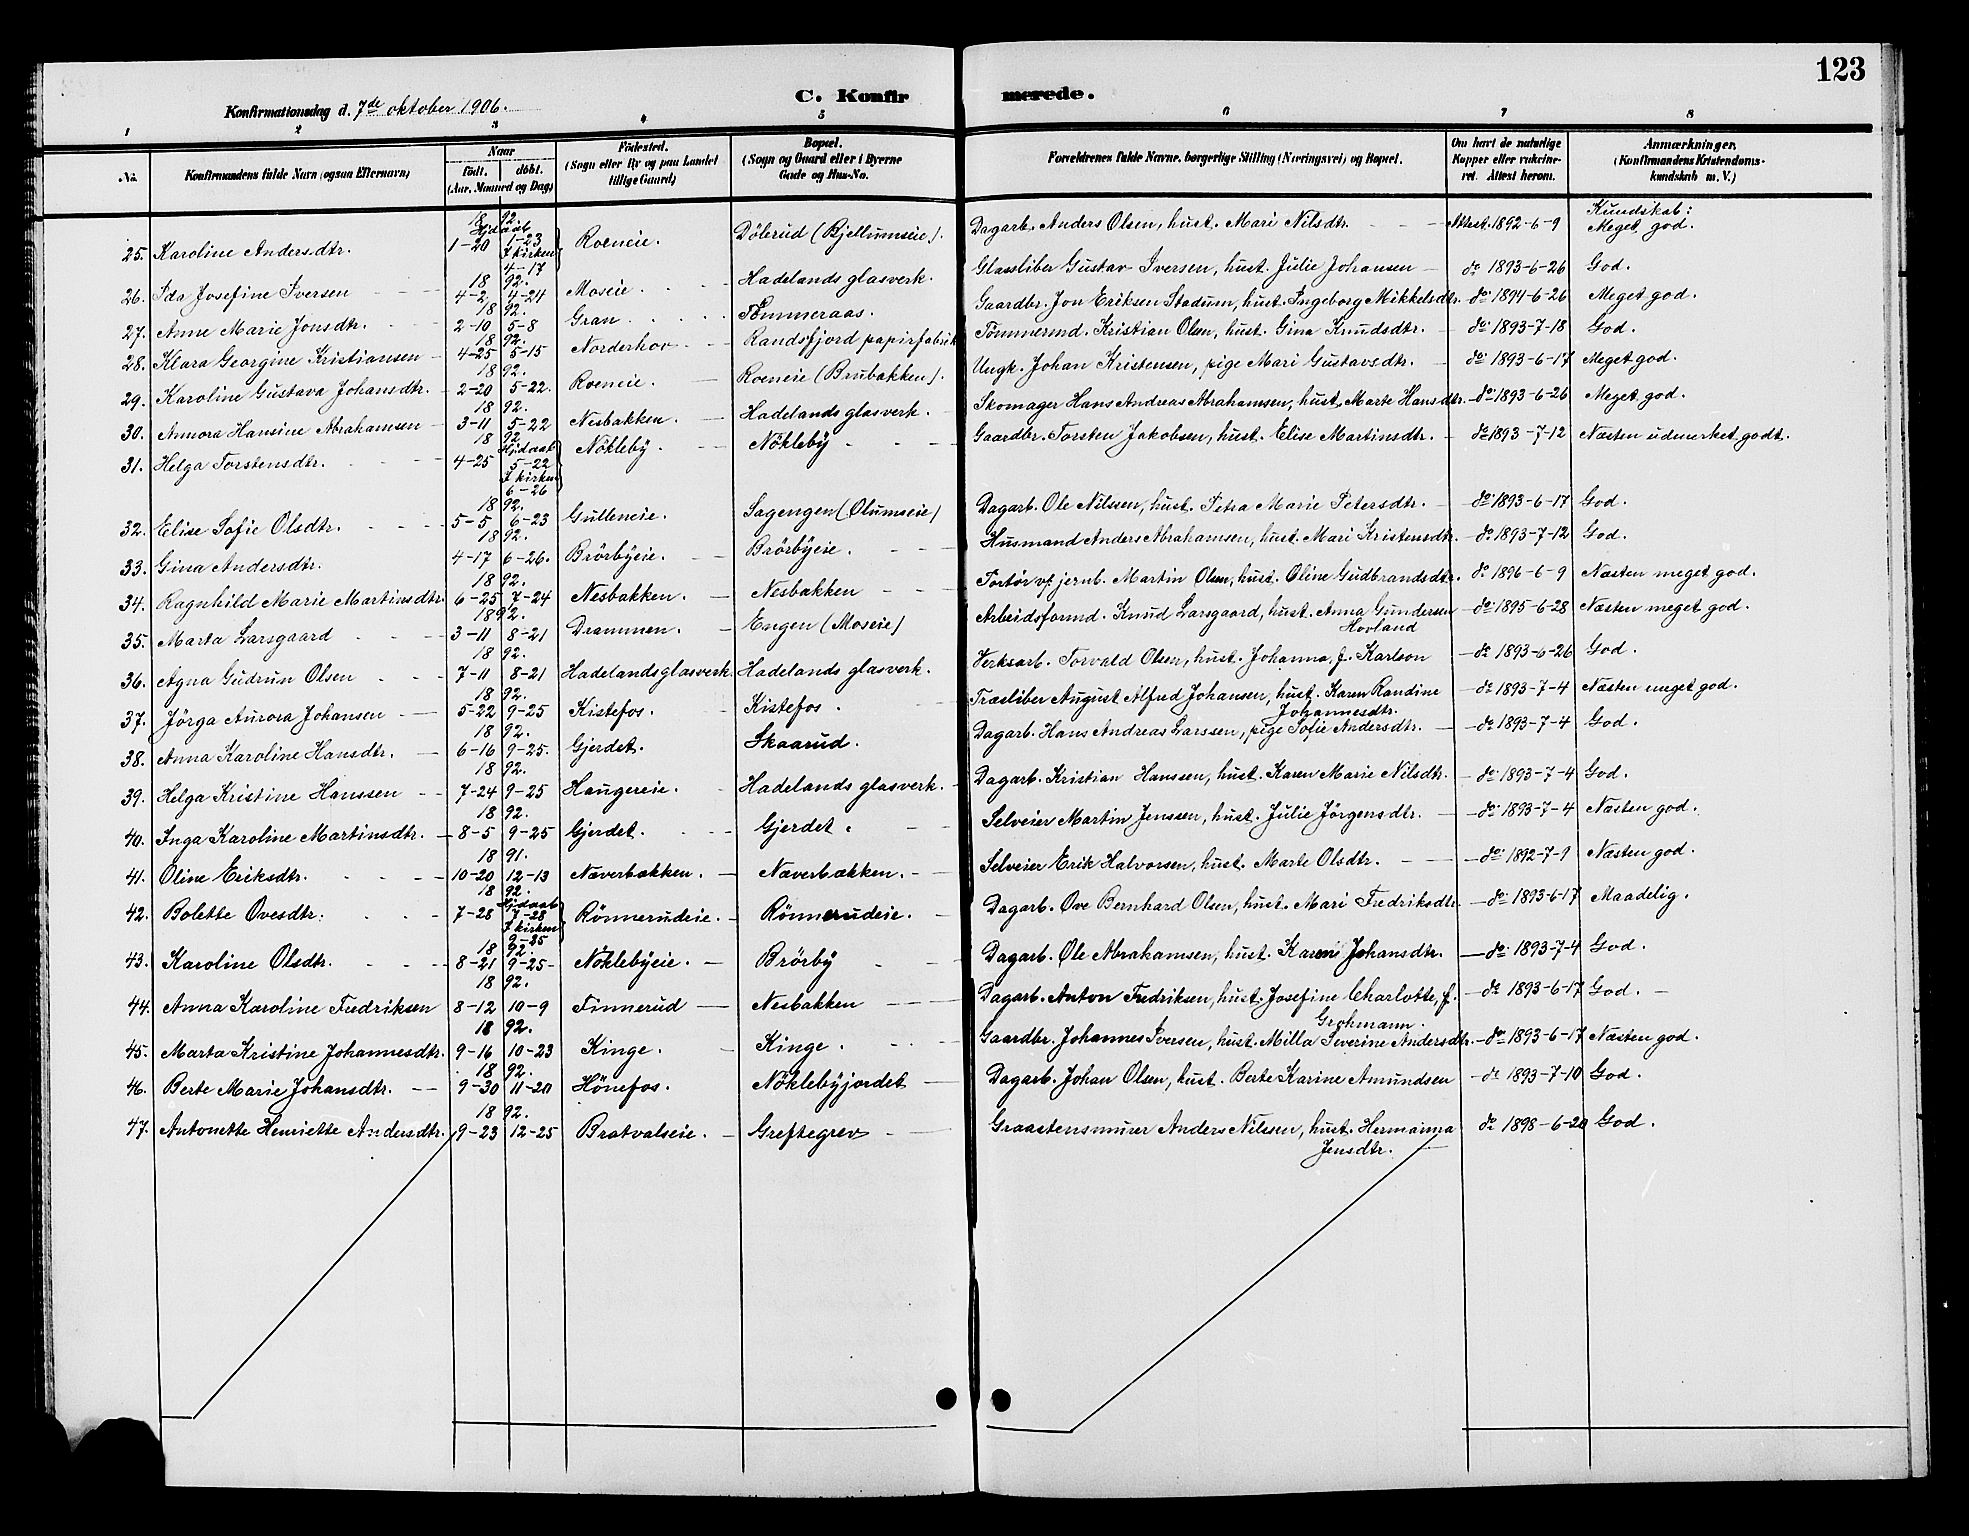 123
C. Konfirmerede.
Konfirmationsdag d. 7de oktober 1906.
1 2 3 4 5 6 7 8
No. Konfirmandens fulde Navn (ogsaa Efternavn) Naar født. døbt. (Aar, Maaned og Dag) Fødested. (Sogn eller By og paa Landet tillige Gaard) Bopæl. (Sogn og Gaard eller i Byerne Gade og Hus-No. Forældrenes fulde Navne, borgerlige Stilling (Næringsvei) og Bopæl. Om havt de naturlige Kopper eller vakcineret. Attest herom. Anmærkninger. (Konfirmandens Kristendomskundskab m. V.)
Kundskab:
25. Karoline Andersdtr. 1892. 1-20 Hjdaab 1-23 I kirken 4-17 Roeneie. Dölerud (Bjellumseie). Dagarb. Anders Olsen, hust. Mari Nilsdtr. Attest. 1892-6-9 Meget god.
26. Ida Josefine Iversen 1892. 4-2 4-24 Moseie. Hadelands glasverk. Glassliber Gustav Iversen, hust. Julie Johansen do 1893-6-26 God.
27. Anne Marie Jonsdtr. 1892. 2-10 5-8 Gran Tömmeraas. Gaardbr. Jon Eriksen Stadum, hust. Ingeborg Mikkelsdtr. do 1894-6-26 Meget god.
28. Klara Georgine Kristiansen 1892. 4-25 5-15 Norderhov Randsfjord papirfabrik Tömmermd. Kristian Olsen, hust. Gina Knudsdtr. do 1893-7-18 God.
29. Karoline Gustava Johansdtr. 1892. 2-20 5-22. Roeneie. Roeneie (Brubakken). Ungk. Johan Kristensen, pige Mari Gustavsdtr. do 1893-6-17 Meget god.
30. Annora Hansine Abrahamsen 1892. 3-11 5-22 Nesbakken. Hadelands glasverk. Skomager Hans Andreas Abrahamsen, hust. Marte Hansdtr. do 1893-6-26 Meget god.
31. Helga Torstensdtr. 1892 4-25 Hjdaab 5-22 I kirken 6-26 Nökleby. Nökleby Gaardbr. Torsten Jakobsen, hust. Elise Martinsdtr. do 1893-7-12 Næsten udmerket godt.
32. Elise Sofie Olsdtr. 1892. 5-5 6-23 Gulleneie. Sagengen (Olumseie) Dagarb. Ole Nilssen, hust. Petra Marie Petersdtr. do 1893-6-17 God.
33. Gina Andersdtr. 1892. 4-17 6-26. Brörbyeie. Brörbyeie. Husmand Anders Abrahamsen, hust. Mari Kristensdtr. do 1893-7-12 God.
34. Ragnhild Marie Martinsdtr. 1892. 6-25 7-24 Nesbakken. Nesbakken Portör v/ jernb. Martin Olsen, hust. Oline Gudbrandsdtr. do 1896-6-9 Næsten meget god.
35. Marta Larsgaard 1892. 3-11 8-21 Drammen. Engen (Moseie) Arbeidsformd. Knud Larsgaard, hust. Anna Gundersen Hovland do 1895-6-28 Næsten meget god.
36. Agna Gudrun Olsen 1892. 7-11 8-21 Hadelands glasverk Hadelands glasverk. Verksarb. Torvald Olsen, hust. Johanna, f. Karlson do 1893-6-26 God.
37. Jörga Aurora Johansen 1892. 5-22 9-25 Kistefos. Kistefos. Træsliber August Alfred Johansen, hust. Karen Randine Johannesdtr. do 1893-7-4 Næsten meget god.
38. Anna Karoline Hansdtr. 1892. 6-16 9-25. Gjerdet. Skaarud. Dagarb. Hans Andreas Larssen, pige Sofie Andersdtr. do 1893-7-4 God.
39. Helga Kristine Hanssen 1892. 7-24 9-25 Haugereie. Hadelands glasverk. Dagarb. Kristian Hanssen, hust. Karen Marie Nilsdtr. do 1893-7-4 God.
40. Inga Karoline Martinsdtr. 1892. 8-5 9-25 Gjerdet. Gjerdet. Selveier Martin Jenssen, hust. Julie Jörgensdtr. do 1893-7-4 Næsten god.
41. Oline Eriksdtr. 1891. 10-20 12-13 Næverbakken. Næverbakken. Selveier Erik Halvorsen, hust. Marte Olsdtr. do 1892-7-9 Næsten god.
42. Bolette Ovesdtr. 1892. 7-28 Hjdaab 7-28 I kirken 9-25 Rönnerudeie. Rönnerudeie. Dagarb. Ove Bernhard Olsen, hust. Mari Fredriksdtr. do 1893-6-17 Maadelig.
43. Karoline Olsdtr. 1892. 8-21 9-25 Nöklebyeie. Brörby Dagarb. Ole Abrahamsen, hust. Karen Johansdtr. do 1893-7-4 God.
44. Anna Karoline Fredriksen 1892. 8-12 10-9 Finnerud Nesbakken Dagarb. Anton Fredriksen, hust. Josefine Charlotte, f. Grohmann. do 1893-6-17 God.
45. Marta Kristine Johannesdtr. 1892. 9-16 10-23 Kinge. Kinge. Gaardbr. Johannes Iversen, hust. Milla Severine Andersdtr. do 1893-6-17 Næsten god.
46. Berte Marie Johansdtr. 1892. 9-30 11-20 Hönefos. Nöklebyjordet Dagarb. Johan Olsen, hust. Berte Karine Amundsen do 1893-7-10 God.
47. Antonette Henriette Andersdtr. 1892. 9-23 12-25 Bratvalseie. Greftegrev Graastensmurer Anders Nilssen, hust. Hermanna Jensdtr. do 1898-6-20 God.